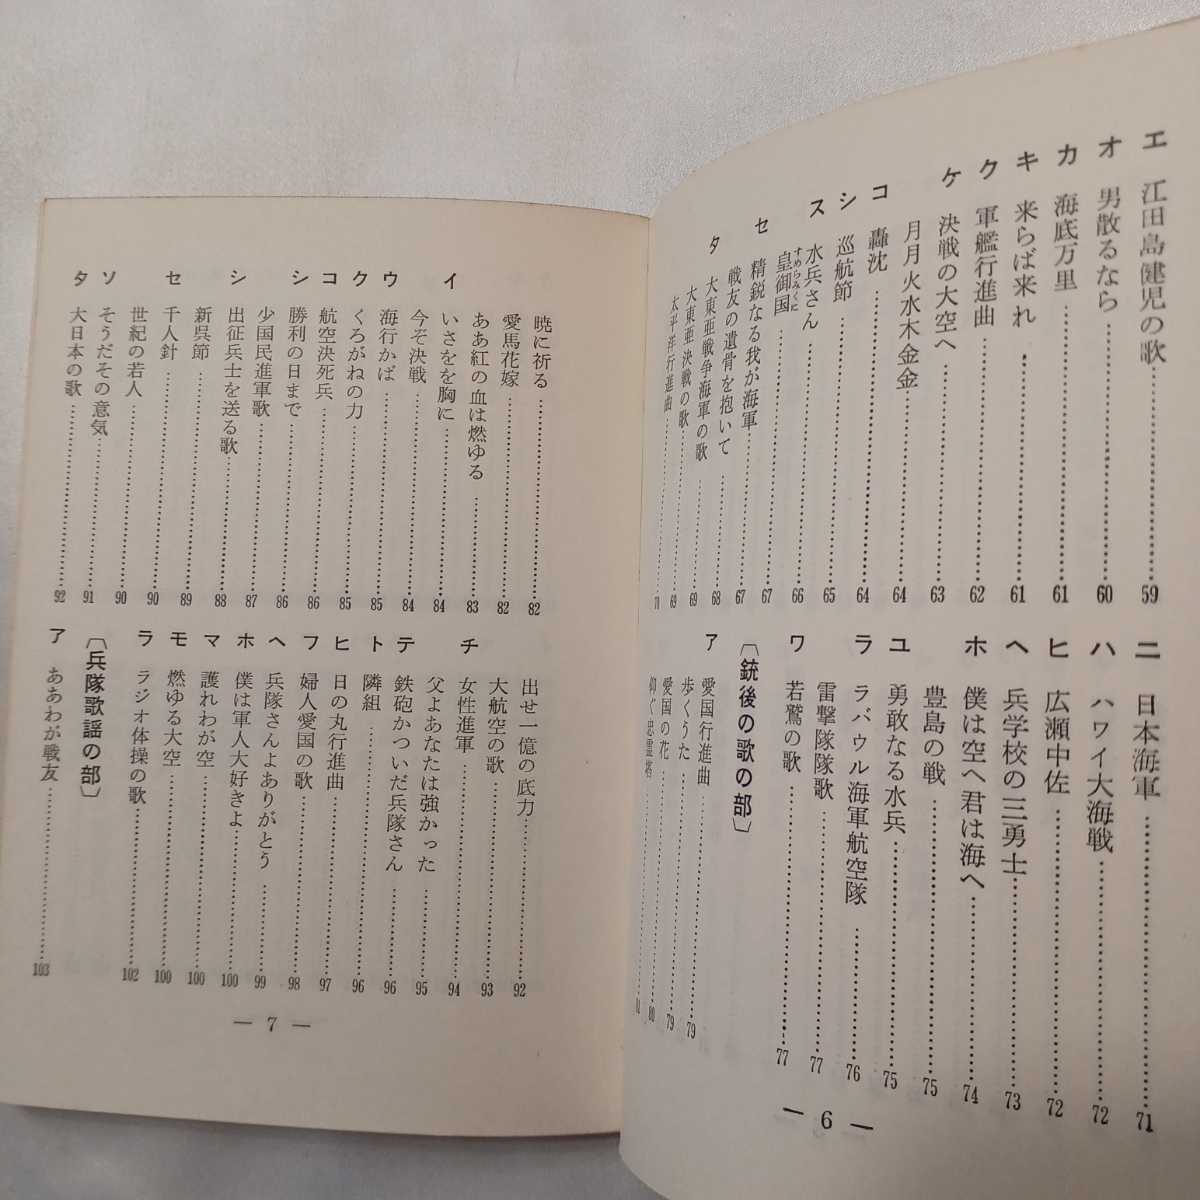 エ 江田島健児の歌……59
オ 男散るなら……60
カ 海底万里……61
キ 来らば来れ……61
ク 軍艦行進曲……62
ケ 決戦の大空へ……63
月月火水木金金……64
コ 轟沈……64
シ 巡航節……65
ス 水兵さん……66
皇御国……67
すめらみくに
セ 精鋭なる我が海軍……67
戦友の遺骨を抱いて……68
タ 大東亜戦争海軍の歌……69
大東亜決戦の歌……69
太平洋行進曲……71
ニ 日本海軍……71
ハ ハワイ大海戦……72
ヒ 広瀬中佐……72
ヘ 兵学校の三勇士……73
ホ 僕は空へ君は海へ……74
豊島の戦……75
ユ 勇敢なる水兵……75
ラ ラバウル海軍航空隊……76
雷撃隊隊歌……77
ワ 若鷲の歌……77
〔銃後の歌の部〕
ア 愛国行進曲……79
歩くうた……79
愛国の花……80
仰ぐ忠霊塔……81
— 6 —
暁に祈る……82
愛馬花嫁……82
ああ紅の血は燃ゆる……83
イ いさをを胸に……84
今ぞ決戦……84
ウ 海行かば……85
ク くろがねの力……85
コ 航空決死兵……86
シ 勝利の日まで……86
少国民進軍歌……87
シ 出征兵士を送る歌……88
新呉節……89
セ 千人針……90
世紀の若人……90
ソ そうだその意気……91
タ 大日本の歌……92
出せ一億の底力……92
大航空の歌……93
チ 女性進軍……94
父よあなたは強かった……95
テ 鉄砲かついだ兵隊さん……96
ト 隣組……96
ヒ 日の丸行進曲……97
フ 婦人愛国の歌……98
ヘ 兵隊さんよありがとう……99
ホ 僕は軍人大好きよ……100
マ 護れわが空……100
モ 燃ゆる大空……100
ラ ラジオ体操の歌……102
〔兵隊歌謡の部〕
ア ああわが戦友……103
— 7 —